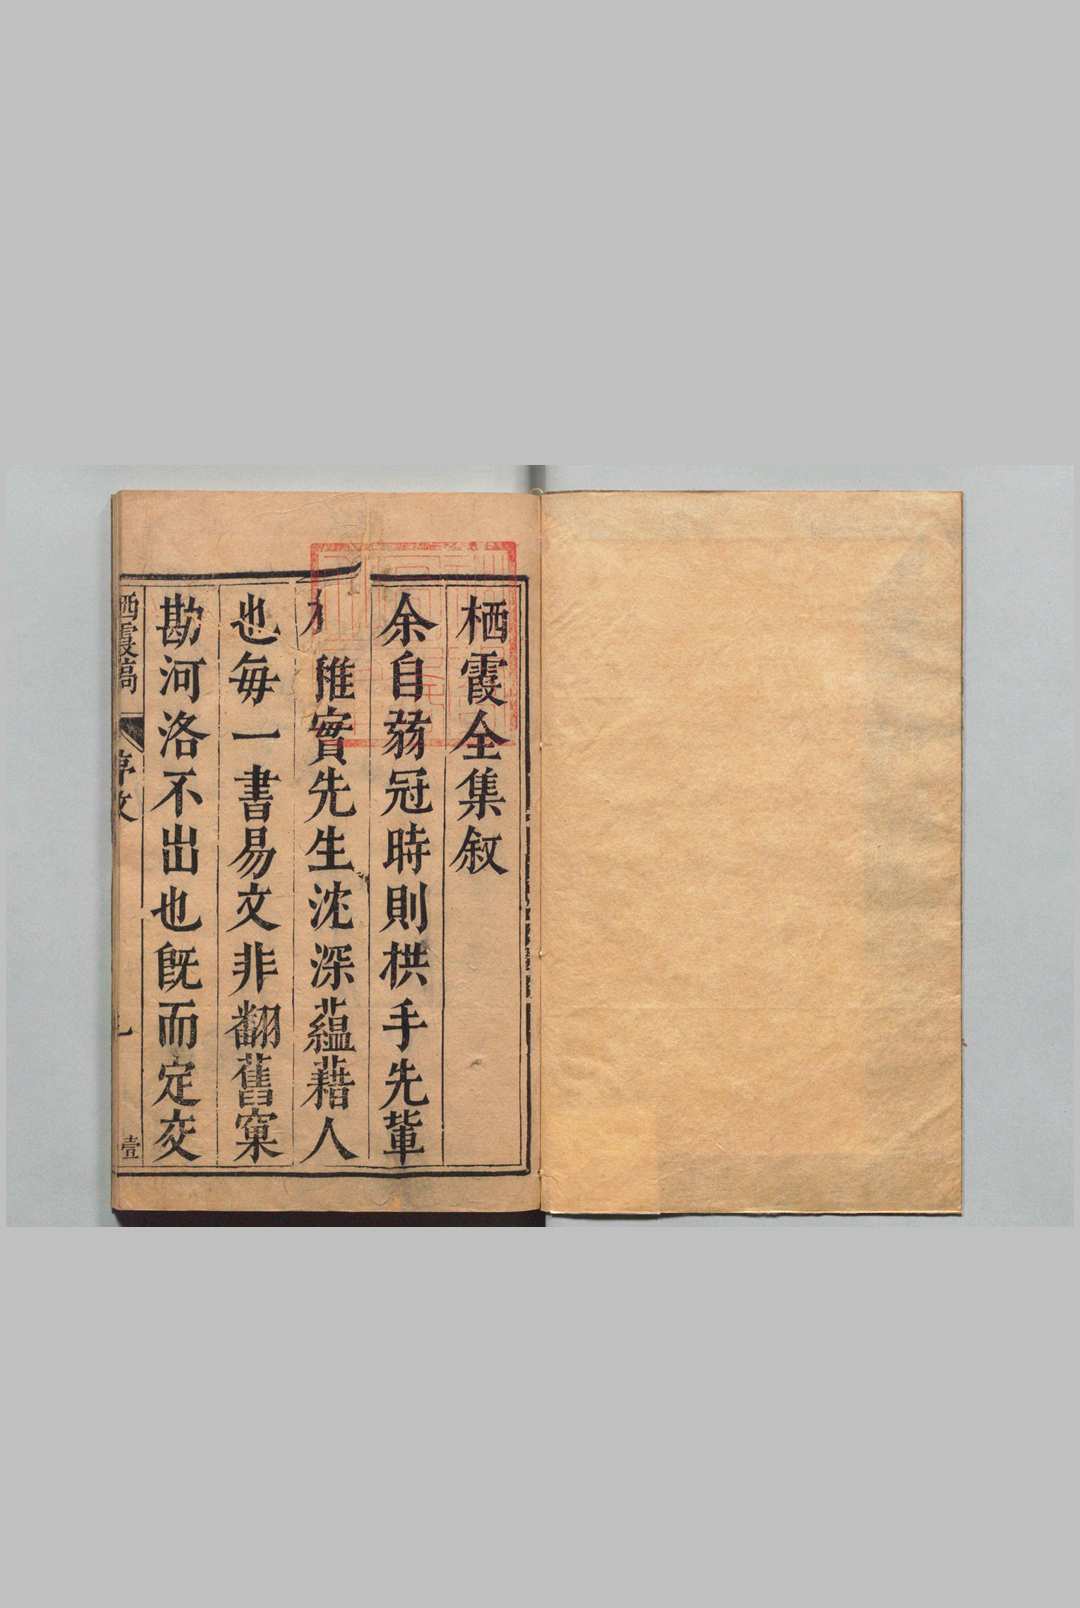 栖霞全集叙
余自蒻冠時則栱手先軰
稚實先生沈深蘊藉人
也每一書易文非翻舊窠
勘河洛不出也旣而定交
栖霞稿
序文
壹